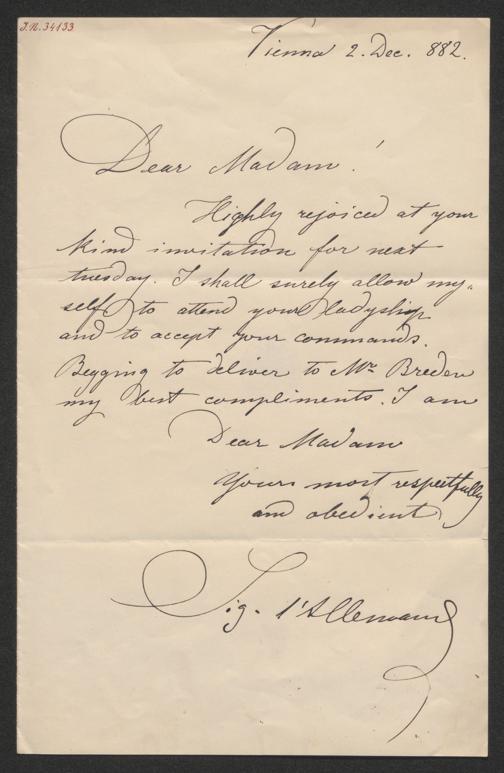 J.N. 34133
Vienna 2. Dec. 882.
Dear Madam!
Highly rejoiced at your
kind invitation for next
tuesday. I shall surely allow my=
self to attend your ladyship
and to accept your commands.
Begging to deliver to Mr. Breden
my best compliments. I am
Dear Madam
Yours most respectfully
and obedient
Sig. l'Allemand